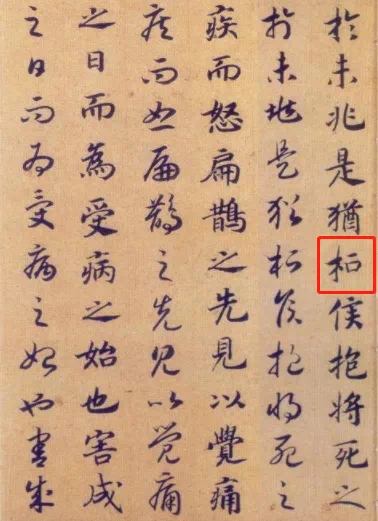 於未兆是猶桓侯抱將死之
於未兆是猶桓侯抱將死之
疾而怒扁鵲之先見以覺痛
疾而怒扁鵲之先見以覺痛
之日而為受病之始也害成
之日而為受病之始也害成